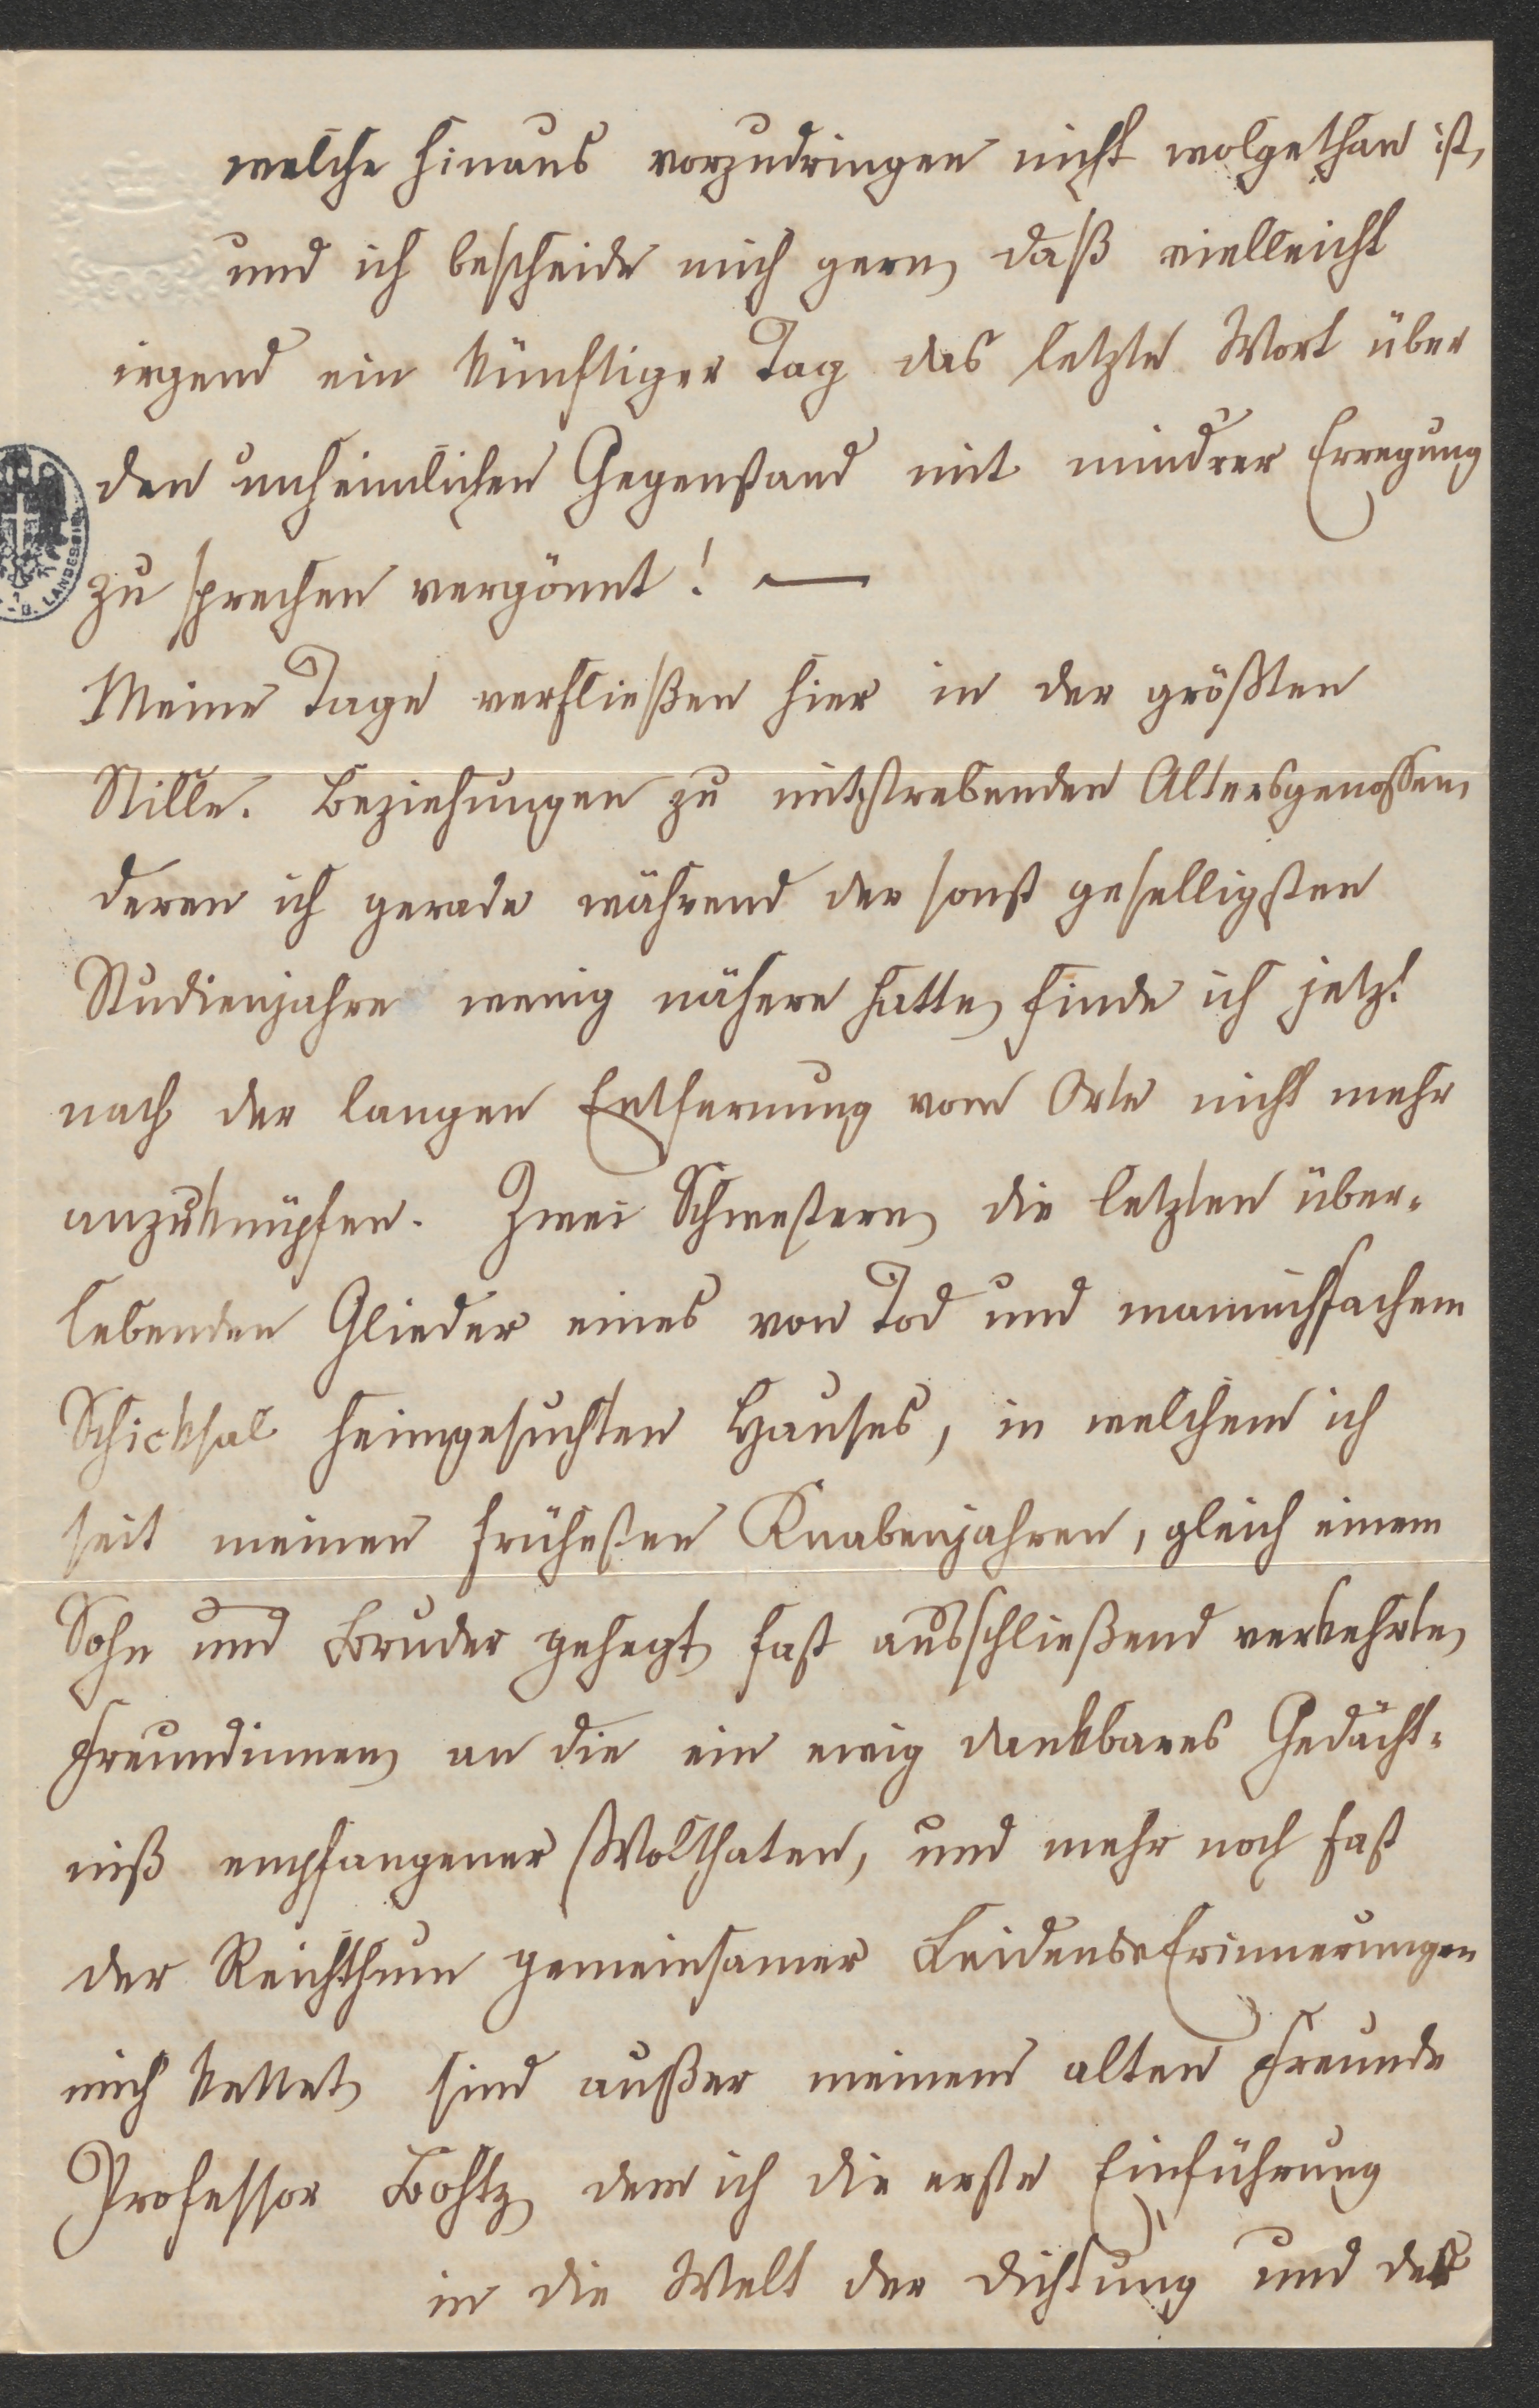 welche hinaus vorzudringen nicht wolgethan ist,
und ich bescheide mich gern, daß vielleicht
irgend ein künftiger Tag das letzte Wort über
den unheimlichen Gegenstand mit mindrer Erregung
zu sprechen vergönnt! —
Meine Tage verfließen hier in der größten
Stille. Beziehungen zu mitstrebenden Altersgenossen,
deren ich gerade während der sonst geselligsten
Studienjahre wenig nähere hatte, finde ich jetzt
nach der langen Entfernung vom Orte nicht mehr
anzuknüpfen. Zwei Schwestern, die letzten über-
lebenden Glieder eines von Tod und mannichfachem
Schicksal heimgesuchten Hauses, in welchem ich
seit meinen frühesten Knabenjahren, gleich einem
Sohn und Bruder gehegt, fast ausschließend verkehrte,
Freundinnen, an die ein ewig dankbares Gedächt-
niß empfangener Wolthaten, und mehr noch fast
der Reichthum gemeinsamer Leidens-Erinnerungen
mich kettet, sind außer meinem alten Freunde
Professor Bohtz, dem ich die erste Einführung
in die Welt der Dichtung und der
LANDESBI